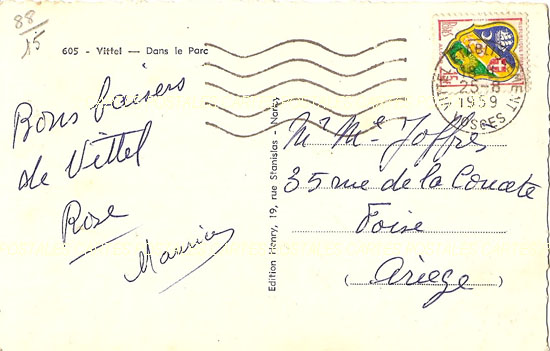 88
15
605 - Vittel — Dans le Parc
Bons baisers
de Vittel
Rose
Maurice
Edition Henry, 19, rue Stanislas - Nancy
Mr Me Joffres
35 rue de la Couate
Foise
(Ariege)
25-8
1959
VOSGES